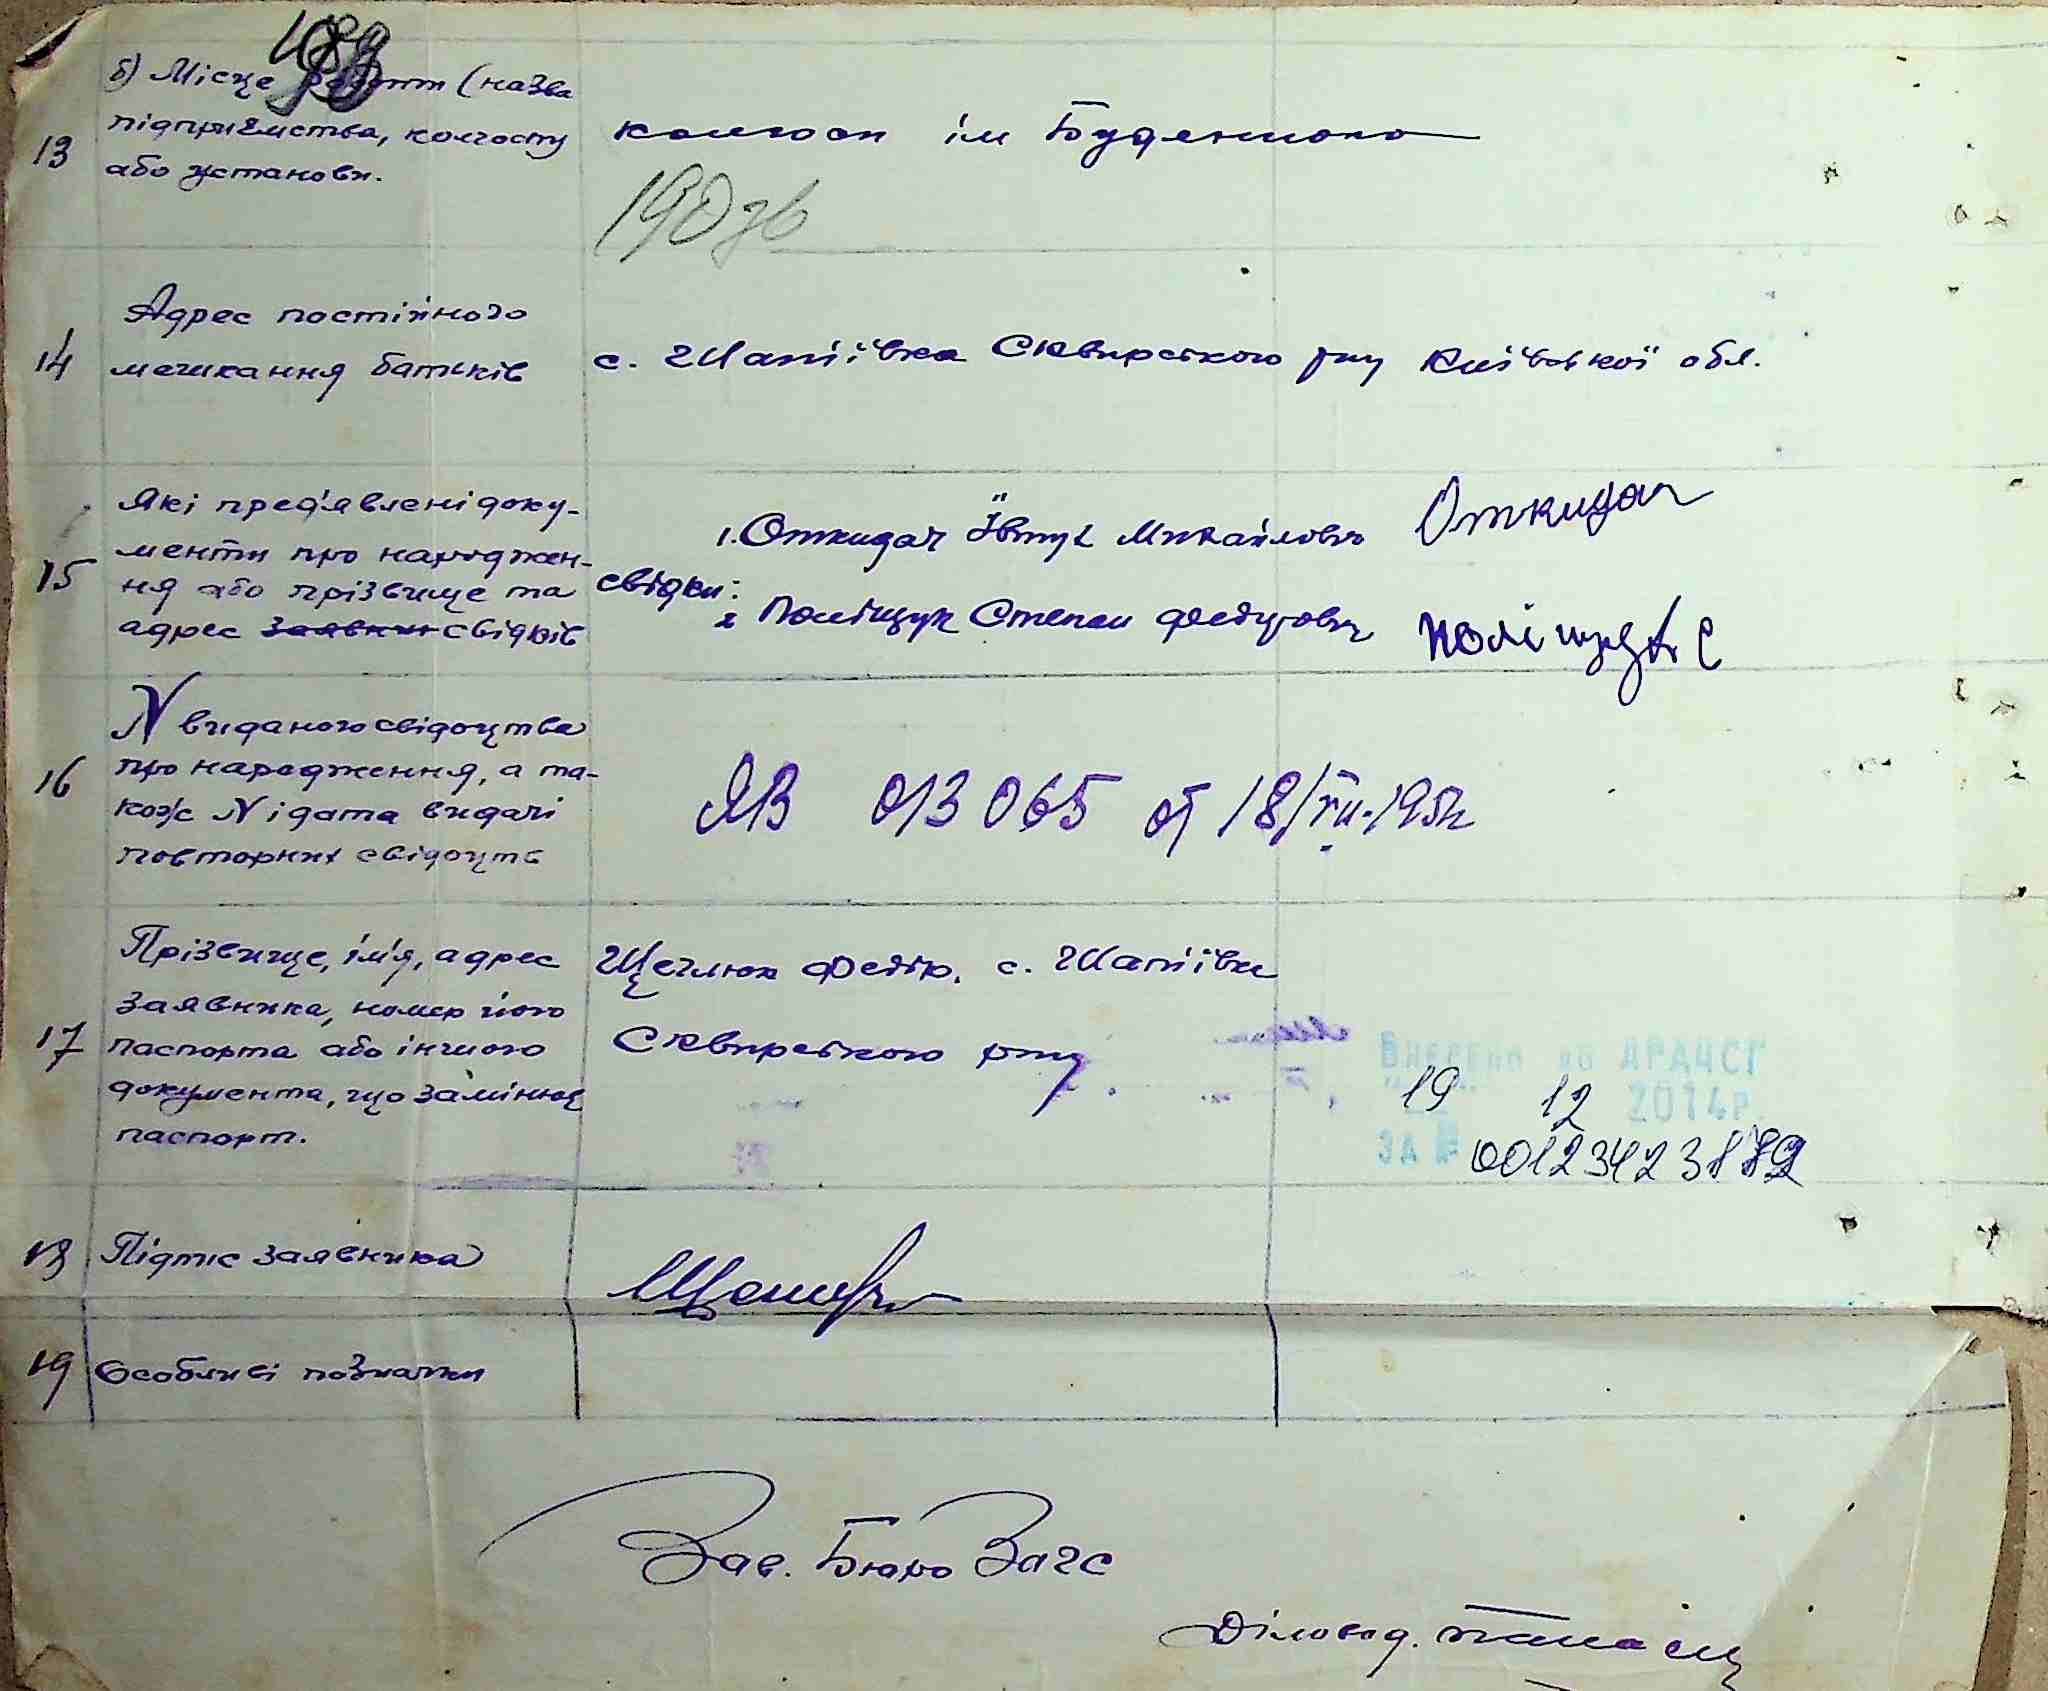 б) Місце роботи (назва
підприємства, колгоспу
або установи.
13
колгосп ім Будьоного
190 зв
14
Адрес постійного
мешкання батьків
с. Шапіївка Сквирського р-ну Київської обл.
15
Які пред'явлені доку-
менти про народжен-
ня або прізвище та
адрес заявки свідків
свідки:
1. Откидач Євтух Михайлович Откидач
2 Поліщук Степан Федорович Поліщук С
16
N виданого свідоцтва
про народження, а та-
кож N і дата видачі
повторних свідоцтв
ЯВ 013065 от 18/VII-195
17
Прізвище, ім'я, адрес
заявника, номер його
паспорта або іншого
документа, що замінює
паспорт.
Щеглюк Федір. с. Шапіївка
Сквирського р-ну
Внесено до ДРАЦСГ
"19" 12 2014р.
ЗА № 00123423889
18
Підпис заявника
19
Особливі позначки
Зав. Бюро Загс
Діловод.